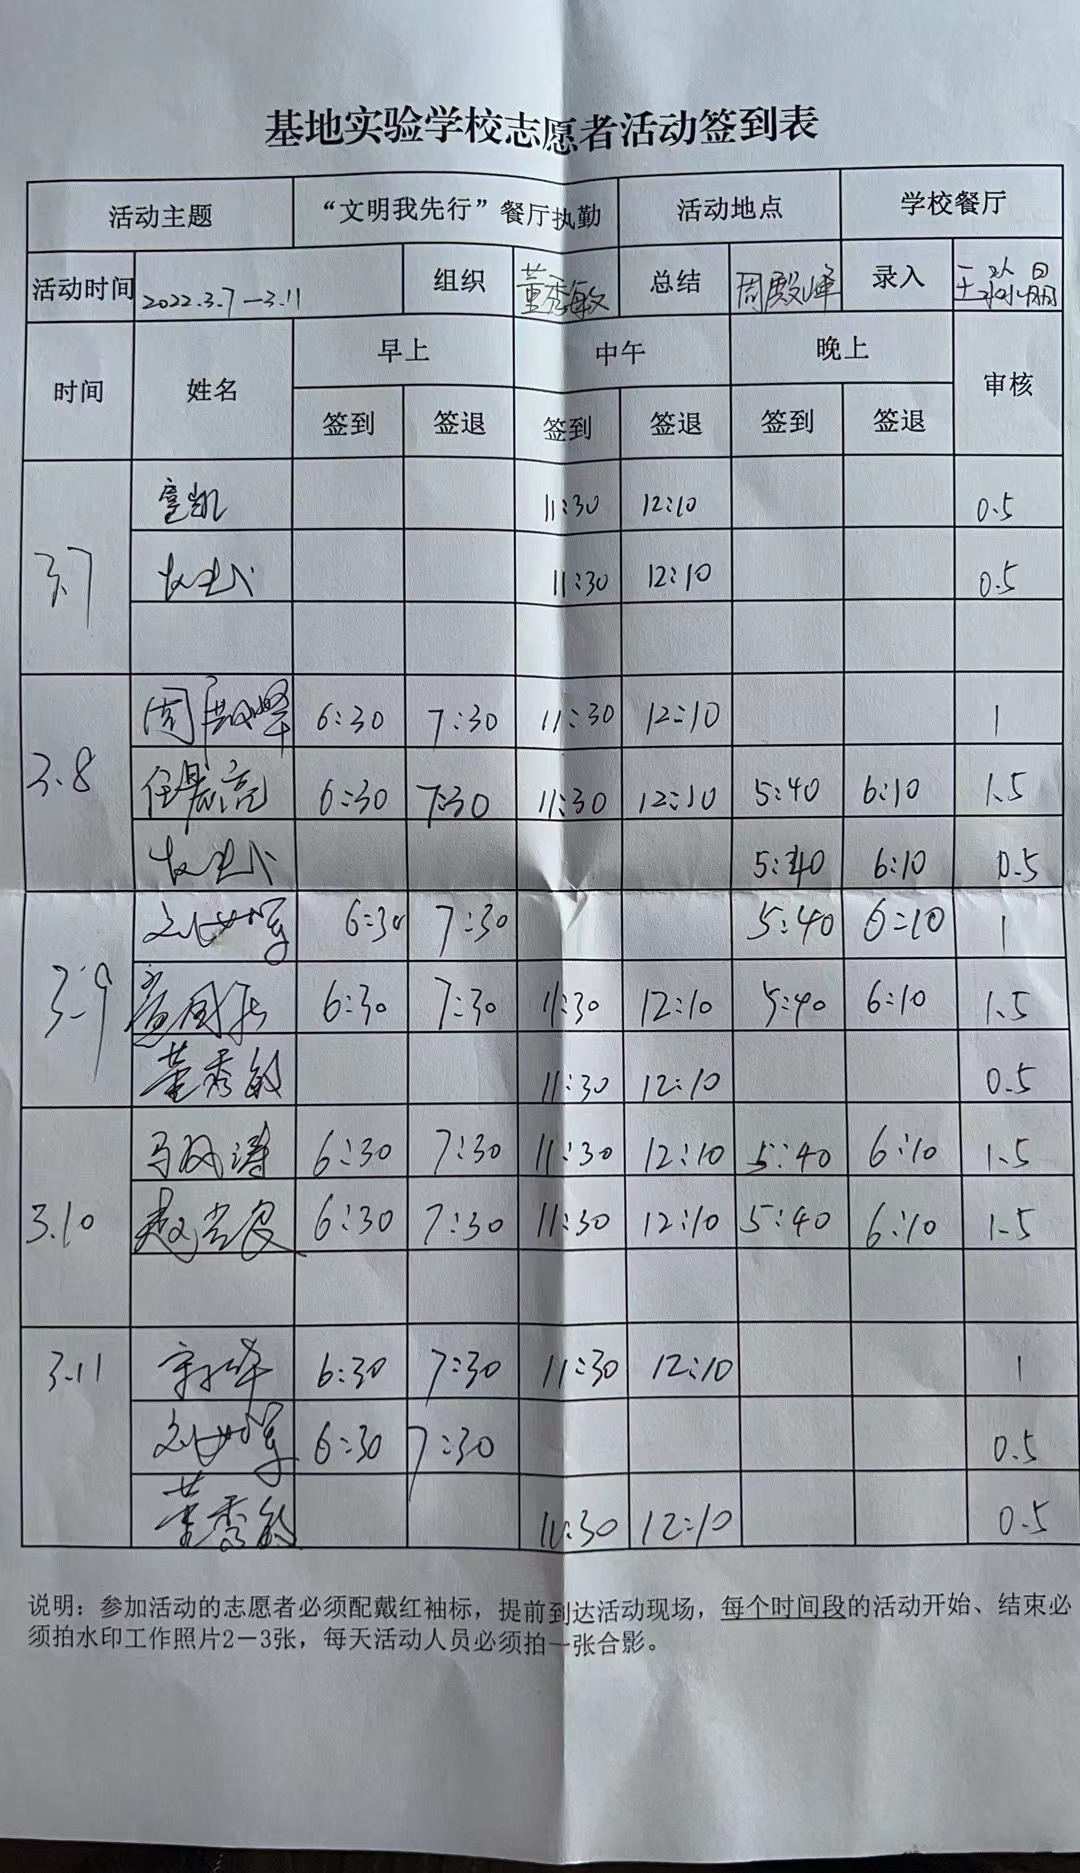 基地实验学校志愿者活动签到表
活动主题 “文明我先行”餐厅执勤 活动地点 学校餐厅
活动时间 2022.3.7—3.11 组织 董秀敏 总结 周殿峰 录入
时间 姓名 早上 中午 晚上 审核
签到 签退 签到 签退 签到 签退
3.7 11:30 12:10 0.5
11:30 12:10 0.5
3.8 周殿峰 6:30 7:30 11:30 12:10 1
任晨亮 6:30 7:30 11:30 12:10 5:40 6:10 1.5
5:40 6:10 0.5
3.9 6:30 7:30 5:40 6:10 1
6:30 7:30 11:30 12:10 5:40 6:10 1.5
董秀敏 11:30 12:10 0.5
3.10 6:30 7:30 11:30 12:10 5:40 6:10 1.5
6:30 7:30 11:30 12:10 5:40 6:10 1.5
3.11 6:30 7:30 11:30 12:10 1
6:30 7:30 0.5
董秀敏 11:30 12:10 0.5
说明：参加活动的志愿者必须配戴红袖标，提前到达活动现场，每个时间段的活动开始、结束必
须拍水印工作照片2—3张，每天活动人员必须拍一张合影。